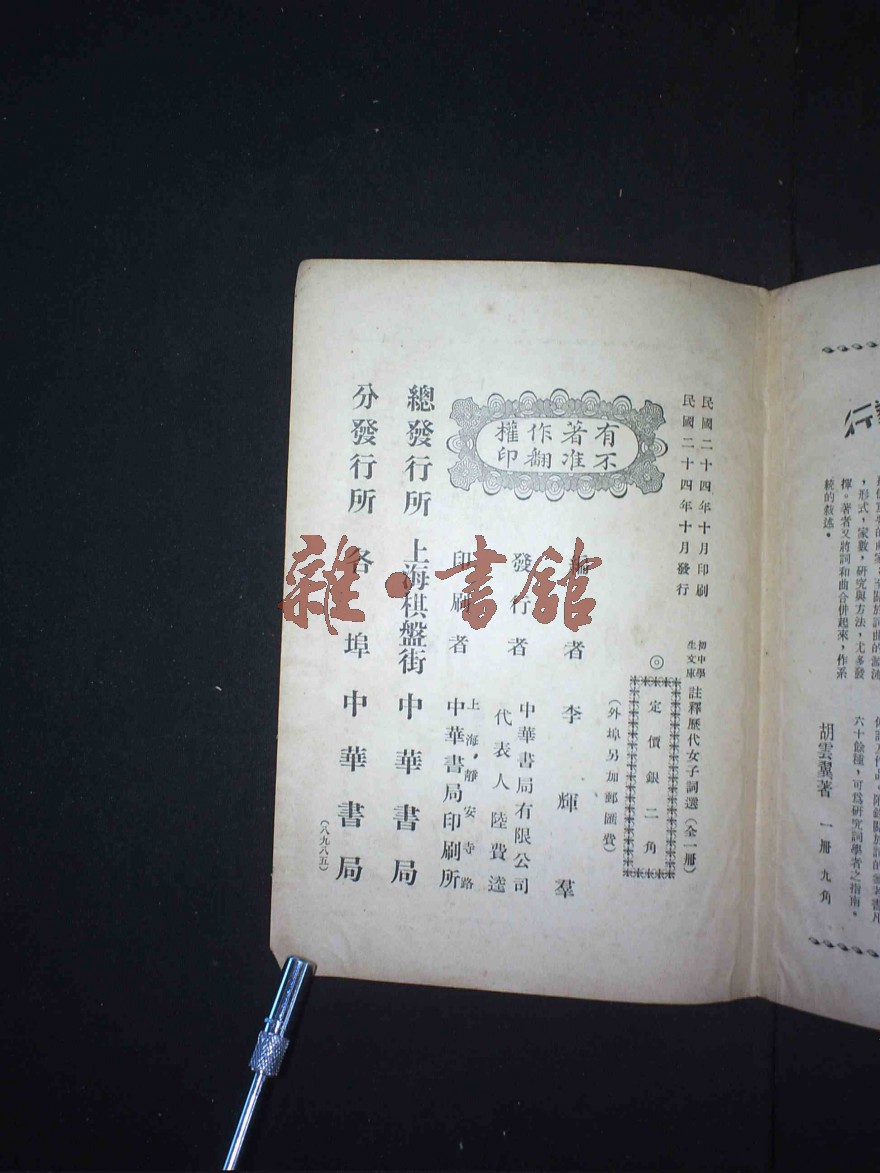 行
，形式，家數，研究與方法，尤多發
揮。著者又將詞和曲合併起來，作系
統的敘述。
六十餘種，可爲研究詞學者之指南。
胡雲翼著　一冊　九角
民國二十四年十月印刷
民國二十四年十月發行
初中學生文庫
註釋歷代女子詞選（全一冊）
◎
定價銀二角
（外埠另加郵匯費）
有著作權
不准翻印
編者　李輝羣
發行者　中華書局有限公司
代表人　陸費逵
印刷者　上海靜安寺路
中華書局印刷所
總發行所　上海棋盤街　中華書局
分發行所　各埠　中華書局
（八九八五）
雜·書館